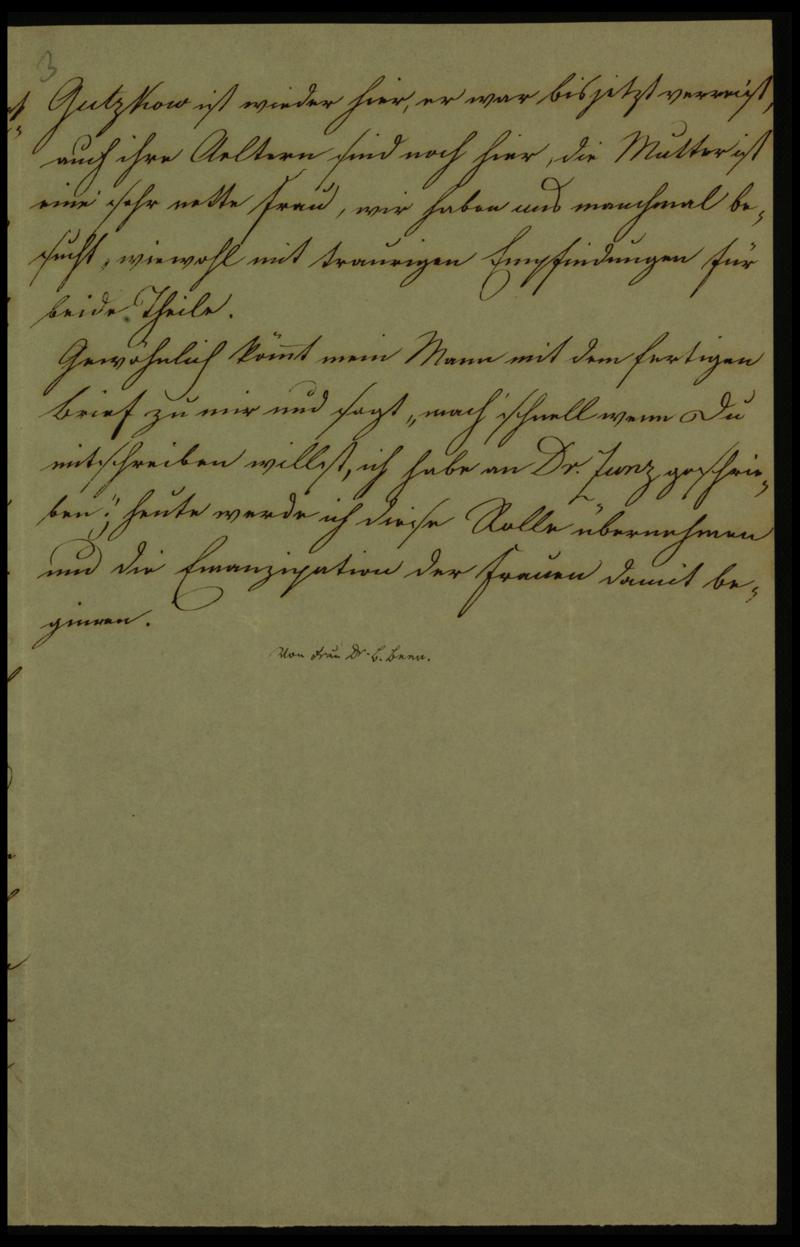 3
Gutzkow ist wieder hier, er war bis jetzt verreist,
auch ihre Aeltern sind noch hier, die Mutter ist
eine sehr nette Frau, wir haben uns manchmal be„
sucht, wiewohl mit traurigen Empfindungen für
beide Theile.
Gewöhnlich kom̅t mein Mann mit dem fertigen
Brief zu mir und sagt „mach' schnell wenn Du
mitschreiben willst, ich habe an Dr. Zunz geschrie„
ben“; heute werde ich diese Rolle übernehmen
und die Emanzipation der Frauen damit be„
ginnen.
Von Frau Dr. B. Beer.